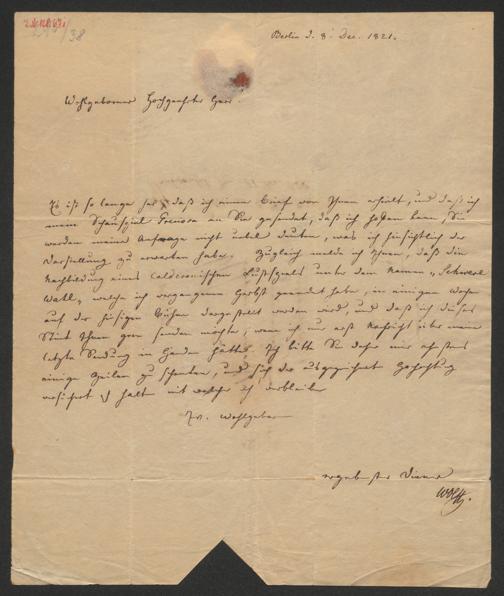 38
Berlin d. 8 Dec. 1821.
Wohlgeborner Hochgeehrter Herr!
Es ist so lange her, daß ich einen Brief von Ihnen erhielt, und daß ich
mein Schauspiel an Sie gesendet, daß ich hoffen kann, Sie
werden meine Anfrage nicht uebel deuten, was ich hinsichtlich der
Darstellung zu erwarten habe. Zugleich melde ich Ihnen, daß die
Nachbildung eines Calderonischen Lustspiels unter dem Namen
welche ich vergangenen Herbst habe, in einigen Wochen
auf der hiesigen Bühne dargestellt werden wird, und daß ich dieses
Stück Ihnen gern senden möchte, wenn ich nur erst Nachricht über meine
letzte Sendung in Händen hätte. Ich bitte Sie daher mir
einige Zeilen zu schenken, und sich der ausgezeichneten Hochachtung
versichert zu halten mit welcher ich verbleibe
Ew. Wohlgeboren
ergebenster Diener